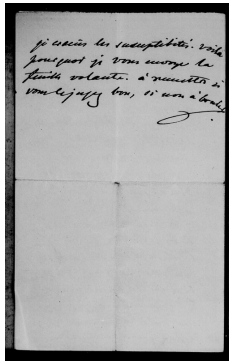 je crains les susceptibilités. voilà
pourquoi je vous envoye la
feuille volante. à remettre si
vous le jugez bon, si non à